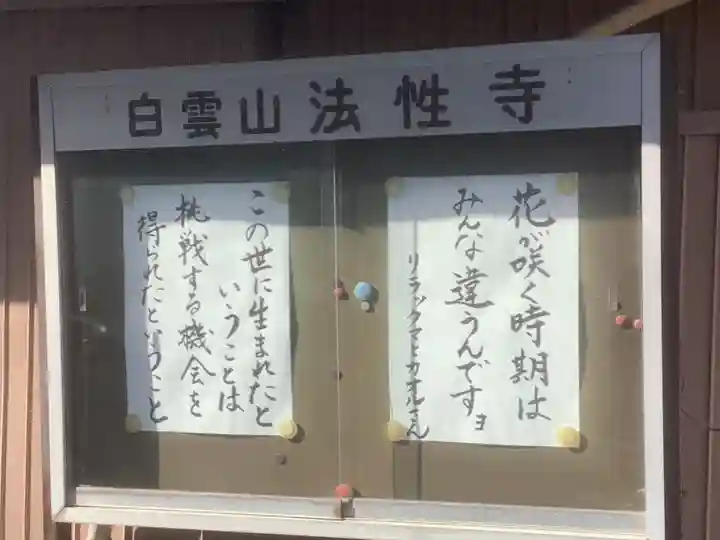 白雲山法性寺
花が咲く時期は
みんな違うんですョ
リラックマとカオルさん
この世に生まれたと
いうことは
挑戦する機会を
得られたということ